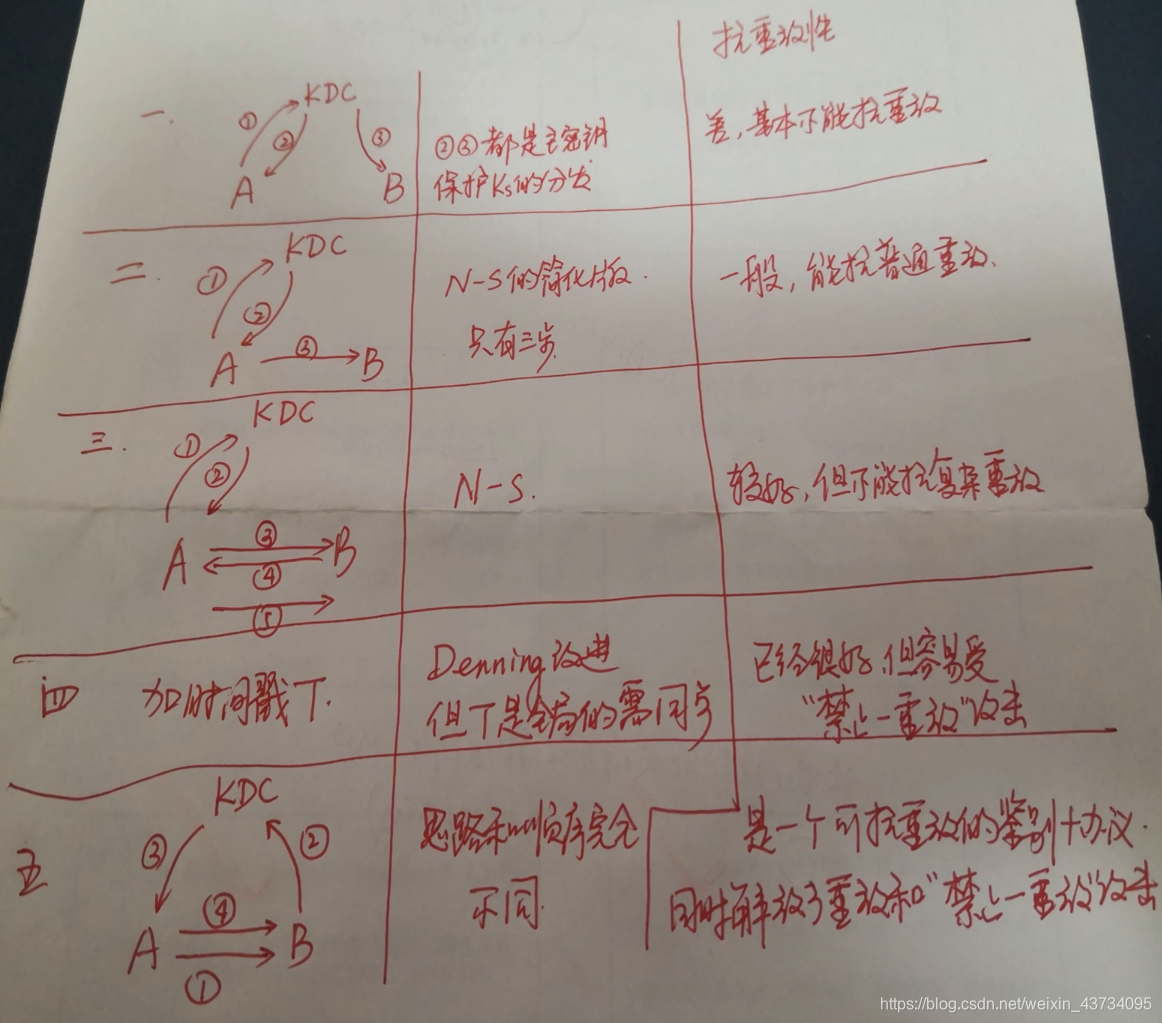 抗重放性
一.
KDC
①
②
③
A
B
②③都是主密钥
保护Ks的分发
差,基本不能抗重放
二.
KDC
①
②
A
③
B
N-S的简化版.
只有三步.
一般,能抗普通重放.
三.
KDC
①
②
A
③
④
⑤
B
N-S.
较好,但不能抗复杂重放
四
加时间戳T.
Denning改进
但T是全局的需同步
已经很好,但容易受
“禁止—重放”攻击
五
KDC
③
②
A
④
①
B
思路和顺序完全
不同.
是一个可抗重放的鉴别协议.
同时解放了重放和“禁止—重放”攻击
https://blog.csdn.net/weixin_43734095